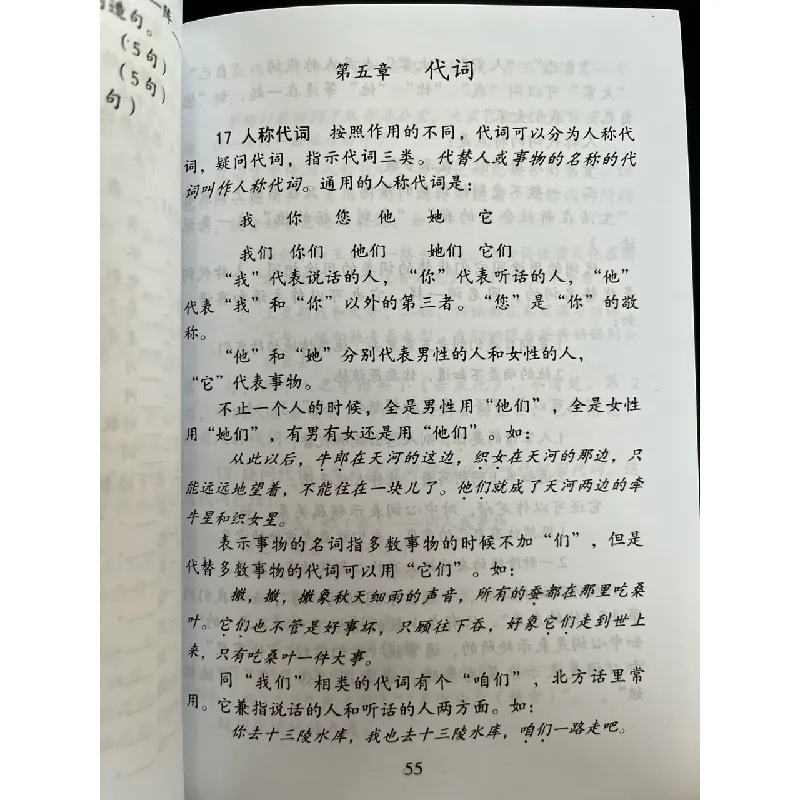 造句。
(5句)
(5句)
句)
第五章 代词
17 人称代词 按照作用的不同，代词可以分为人称代
词，疑问代词，指示代词三类。代替人或事物的名称的代
词叫作人称代词。通用的人称代词是：
我 你 您 他 她 它
我们 你们 他们 她们 它们
“我”代表说话的人，“你”代表听话的人，“他”
代表“我”和“你”以外的第三者。“您”是“你”的敬
称。
“他”和“她”分别代表男性的人和女性的人，
“它”代表事物。
不止一个人的时候，全是男性用“他们”，全是女性
用“她们”，有男有女还是用“他们”。如：
从此以后，牛郎在天河的这边，织女在天河的那边，只
能远远地望着，不能住在一块儿了。他们就成了天河两边的牵
牛星和织女星。
表示事物的名词指多数事物的时候不加“们”，但是
代替多数事物的代词可以用“它们”。如：
搬，搬，搬象秋天细雨的声音，所有的蚕都在那里吃桑
叶。它们也不管是好事坏，只顾往下吞，好象它们走到世上
来，只有吃桑叶一件大事。
同“我们”相类的代词有个“咱们”，北方话里常
用。它兼指说话的人和听话的人两方面。如：
你去十三陵水库，我也去十三陵水库，咱们一路走吧。
55